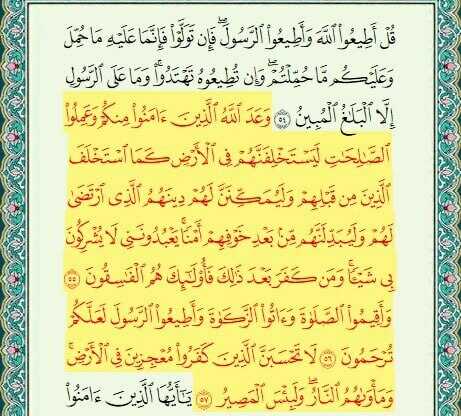 قُلْ أَطِيعُوا۟ ٱللَّهَ وَأَطِيعُوا۟ ٱلرَّسُولَ ۖ فَإِن تَوَلَّوْا۟ فَإِنَّمَا عَلَيْهِ مَا حُمِّلَ
وَعَلَيْكُم مَّا حُمِّلْتُمْ ۖ وَإِن تُطِيعُوهُ تَهْتَدُوا۟ ۚ وَمَا عَلَى ٱلرَّسُولِ
إِلَّا ٱلْبَلَٰغُ ٱلْمُبِينُ ۝٥٤ وَعَدَ ٱللَّهُ ٱلَّذِينَ ءَامَنُوا۟ مِنكُمْ وَعَمِلُوا۟
ٱلصَّٰلِحَٰتِ لَيَسْتَخْلِفَنَّهُمْ فِى ٱلْأَرْضِ كَمَا ٱسْتَخْلَفَ
ٱلَّذِينَ مِن قَبْلِهِمْ وَلَيُمَكِّنَنَّ لَهُمْ دِينَهُمُ ٱلَّذِى ٱرْتَضَىٰ
لَهُمْ وَلَيُبَدِّلَنَّهُم مِّنۢ بَعْدِ خَوْفِهِمْ أَمْنًا ۚ يَعْبُدُونَنِى لَا يُشْرِكُونَ
بِى شَيْـًٔا ۚ وَمَن كَفَرَ بَعْدَ ذَٰلِكَ فَأُو۟لَٰٓئِكَ هُمُ ٱلْفَٰسِقُونَ ۝٥٥
وَأَقِيمُوا۟ ٱلصَّلَوٰةَ وَءَاتُوا۟ ٱلزَّكَوٰةَ وَأَطِيعُوا۟ ٱلرَّسُولَ لَعَلَّكُمْ
تُرْحَمُونَ ۝٥٦ لَا تَحْسَبَنَّ ٱلَّذِينَ كَفَرُوا۟ مُعْجِزِينَ فِى ٱلْأَرْضِ ۚ
وَمَأْوَىٰهُمُ ٱلنَّارُ ۖ وَلَبِئْسَ ٱلْمَصِيرُ ۝٥٧ يَٰٓأَيُّهَا ٱلَّذِينَ ءَامَنُوا۟